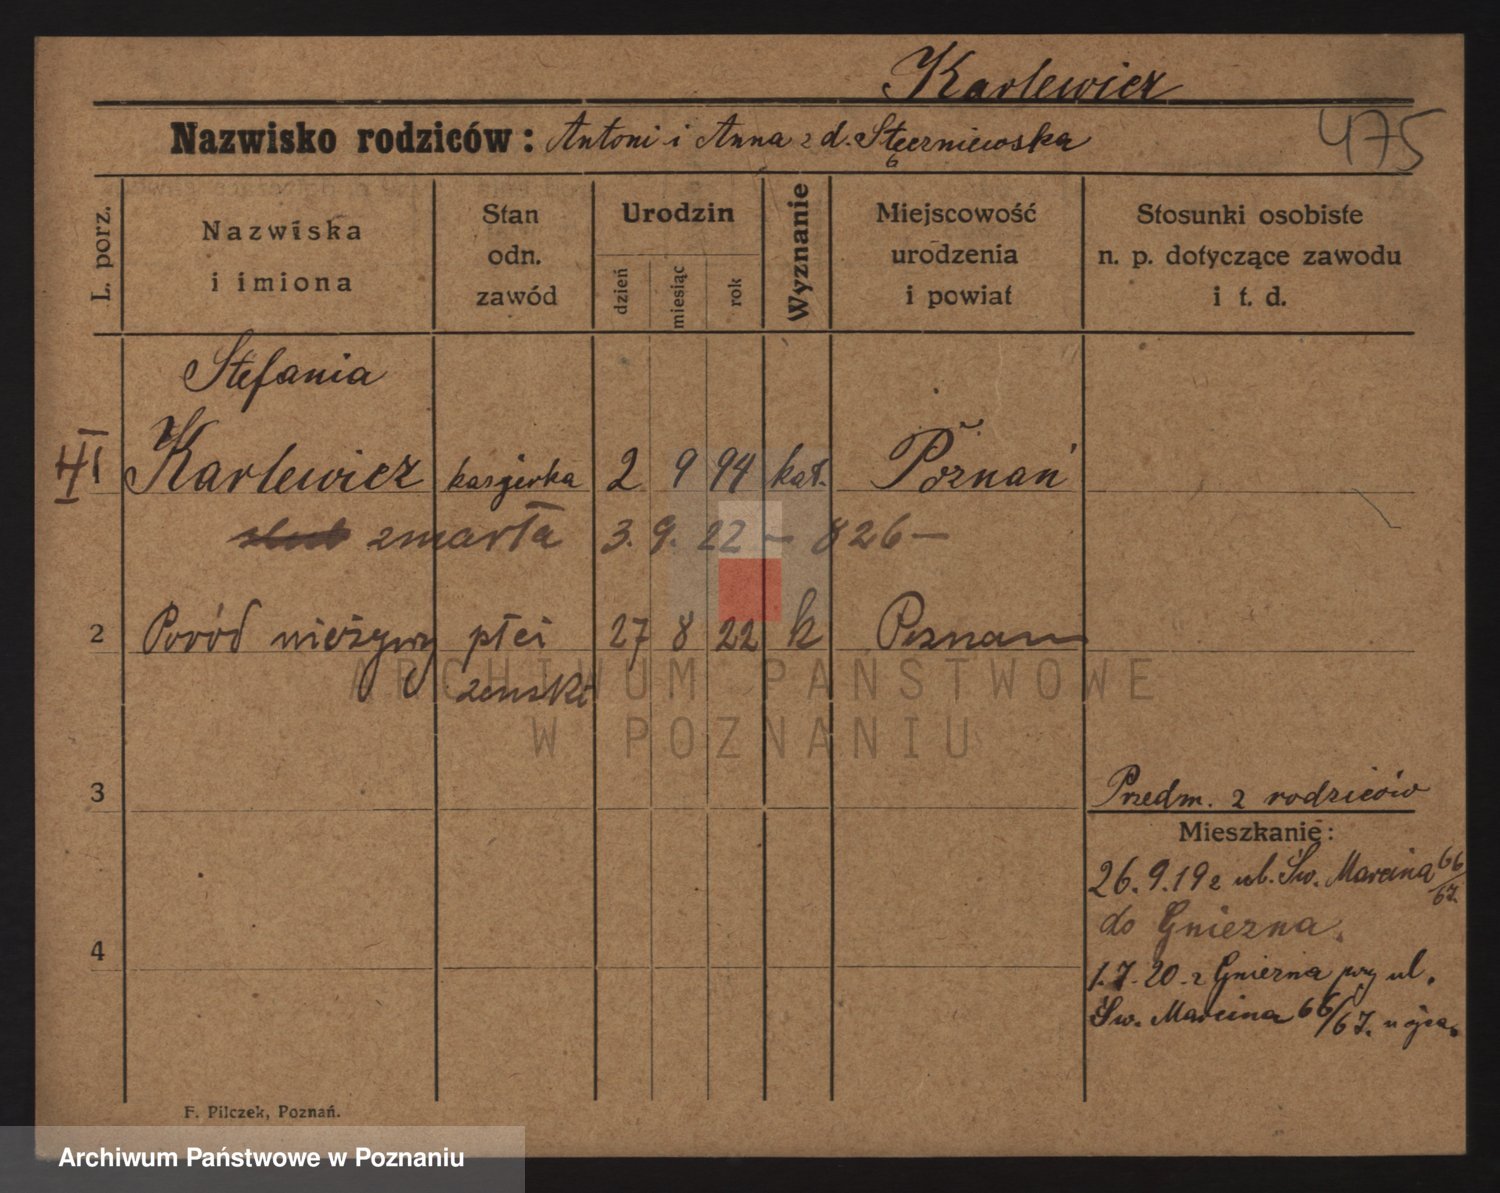 Karlewicz
Nazwisko rodziców: Antoni i Anna z d. 
475
L. porz.
Nazwiska i imiona
Stan odn. zawód
Urodzin
dzień
miesiąc
rok
Wyznanie
Miejscowość urodzenia i powiat
Stosunki osobiste n. p. dotyczące zawodu i t. d.
Stefania
Karlewicz kasjerka 2 9 94 kat. Poznań
zmarła 3. 9. 22 – 826 –
2 Poród nieżywy płci 27 8 22 k Poznań
żeńskiej
3
Przedm. z rodziców
Mieszkanie:
26. 9. 19 z ul. Św. Marcina 66/67.
do Gniezna.
4
1. 7. 20 z Gniezna przy ul.
Św. Marcina 66/67. u ojca.
F. Pilczek, Poznań.
ARCHIWUM PAŃSTWOWE
W POZNANIU
Archiwum Państwowe w Poznaniu